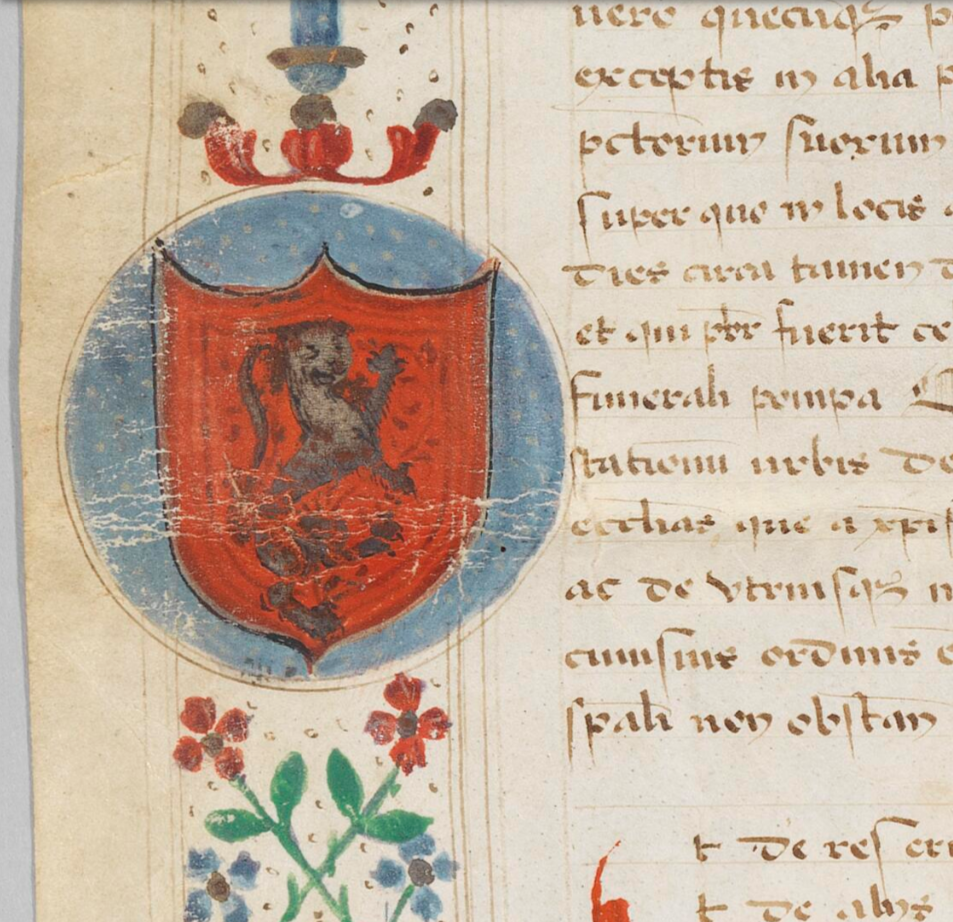 vero quecūqȝ p
exceptis in alia p
pctorum suorum
super que in locis a
dies circa tamen d
et qui pbr fuerit ce
funerali pompa
stationū urbis de
ecclias que a xpi
ac de utrиusqȝ n
cuiusuis ordinis e
spali non obstan
t de res eru
t de alys